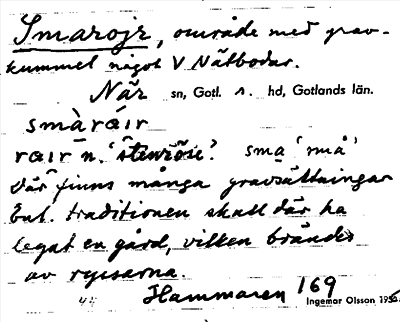 Smarojr, område med grav-
kummel något V Nätbodar.
När sn, Gotl. s. hd, Gotlands län.
smàrair
rair n. 'stenröse'. sma 'små'
Där finns många gravsättningar
Enl. traditionen skall där ha
legat en gård, vilken brändes
av ryssarna.
Hammaren 169
Ingemar Olsson